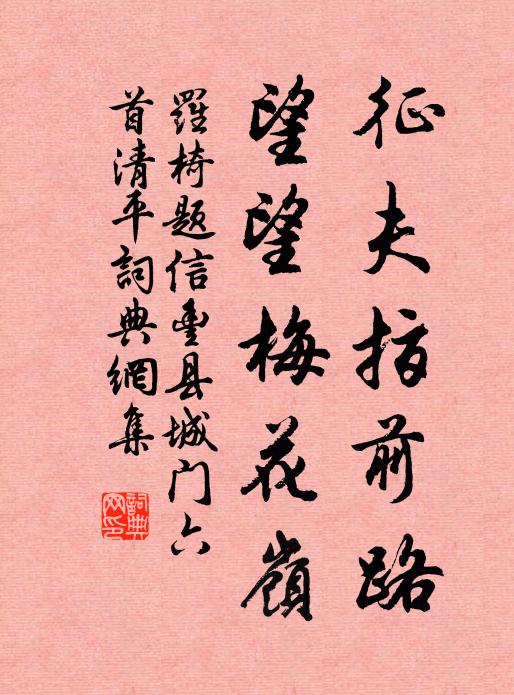 征夫指前路
望望梅花嶺
羅椅題信豐县城门六
首清平詞典網集
詞典网印